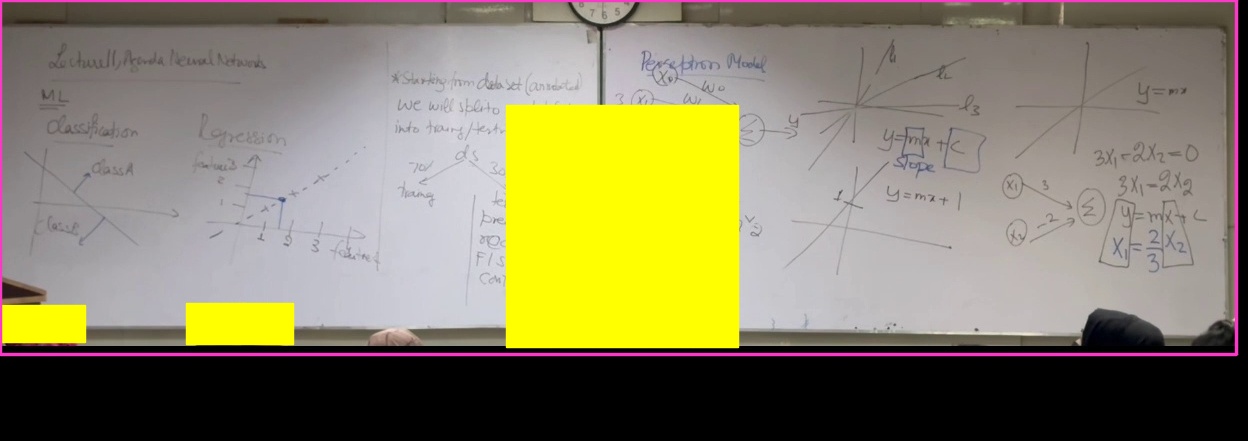 Lecture11, Agenda Neural Networks
ML
Classification
Class A
Class B
Regression
feature2
2
1
1 2 3
feature1
*Starting from dataset (annotated)
we will split
into traing/test
ds
70%
30
traing
te
pre
F1 S
Con
Perceptron Model
X0
W0
3 X1
W1
Σ
y
l1
l2
l3
y=mx+c
Slope
1
y=mx+1
2
y=mx
3X1-2X2=0
3X1=2X2
X1
3
Σ
X2
-2
y=mx+c
X1=2/3 X2